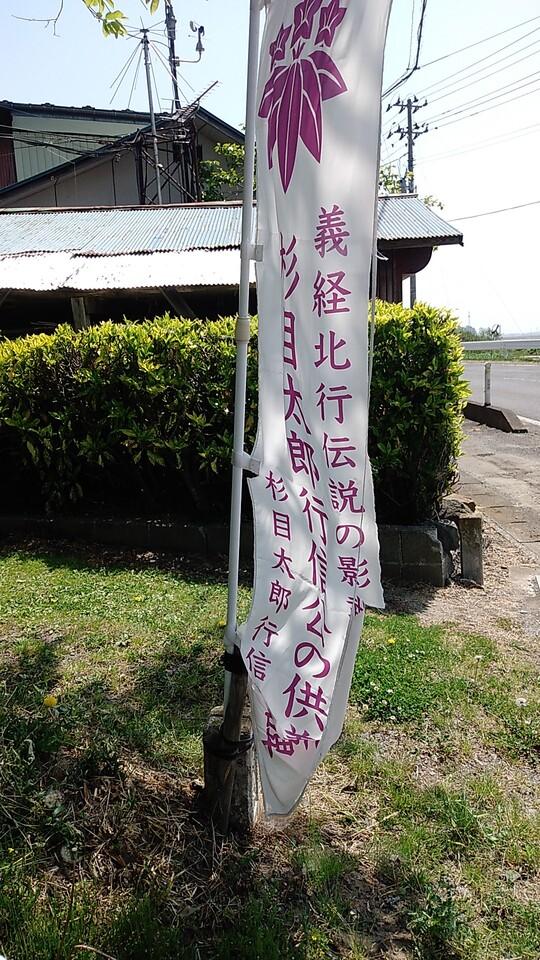 義経北行伝説の影
杉目太郎行信公の供
杉目太郎行信